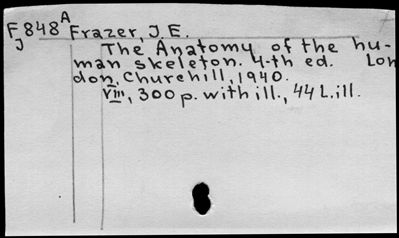 F848 A Frazer, J.E.
J
The Anatomy of the hu-
man skeleton. 4-th ed. Lon
don, Churchill, 1940.
VIII, 300 p. with ill., 44 L. ill.